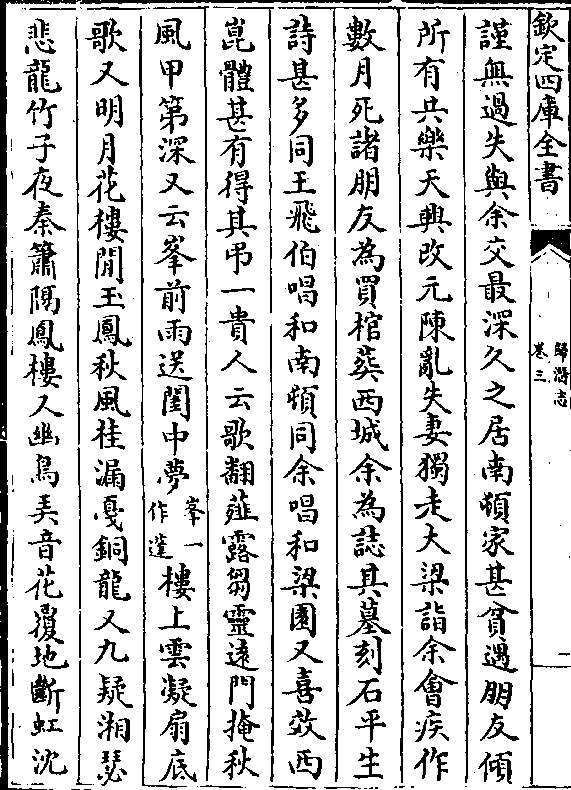 欽定四庫全書
歸潛志
卷三
二
謹無過失與余交最深久之居南頓家甚貧遇朋友傾
所有共樂天興改元陳亂失妻獨走大梁詣余會疾作
數月死諸朋友為買棺葬西城余為誌其墓刻石平生
詩甚多同王飛伯唱和南頓同余唱和梁園又喜效西
崑體甚有得其弔一貴人云歌翻薤露芻靈遠門掩秋
風甲第深又云峯前雨送閨中夢峯一作蓬樓上雲凝扇底
歌又明月花樓閒玉鳳秋風桂漏戛銅龍又九疑湘瑟
悲龍竹子夜秦簫隔鳳樓又幽鳥弄音花覆地斷虹沈